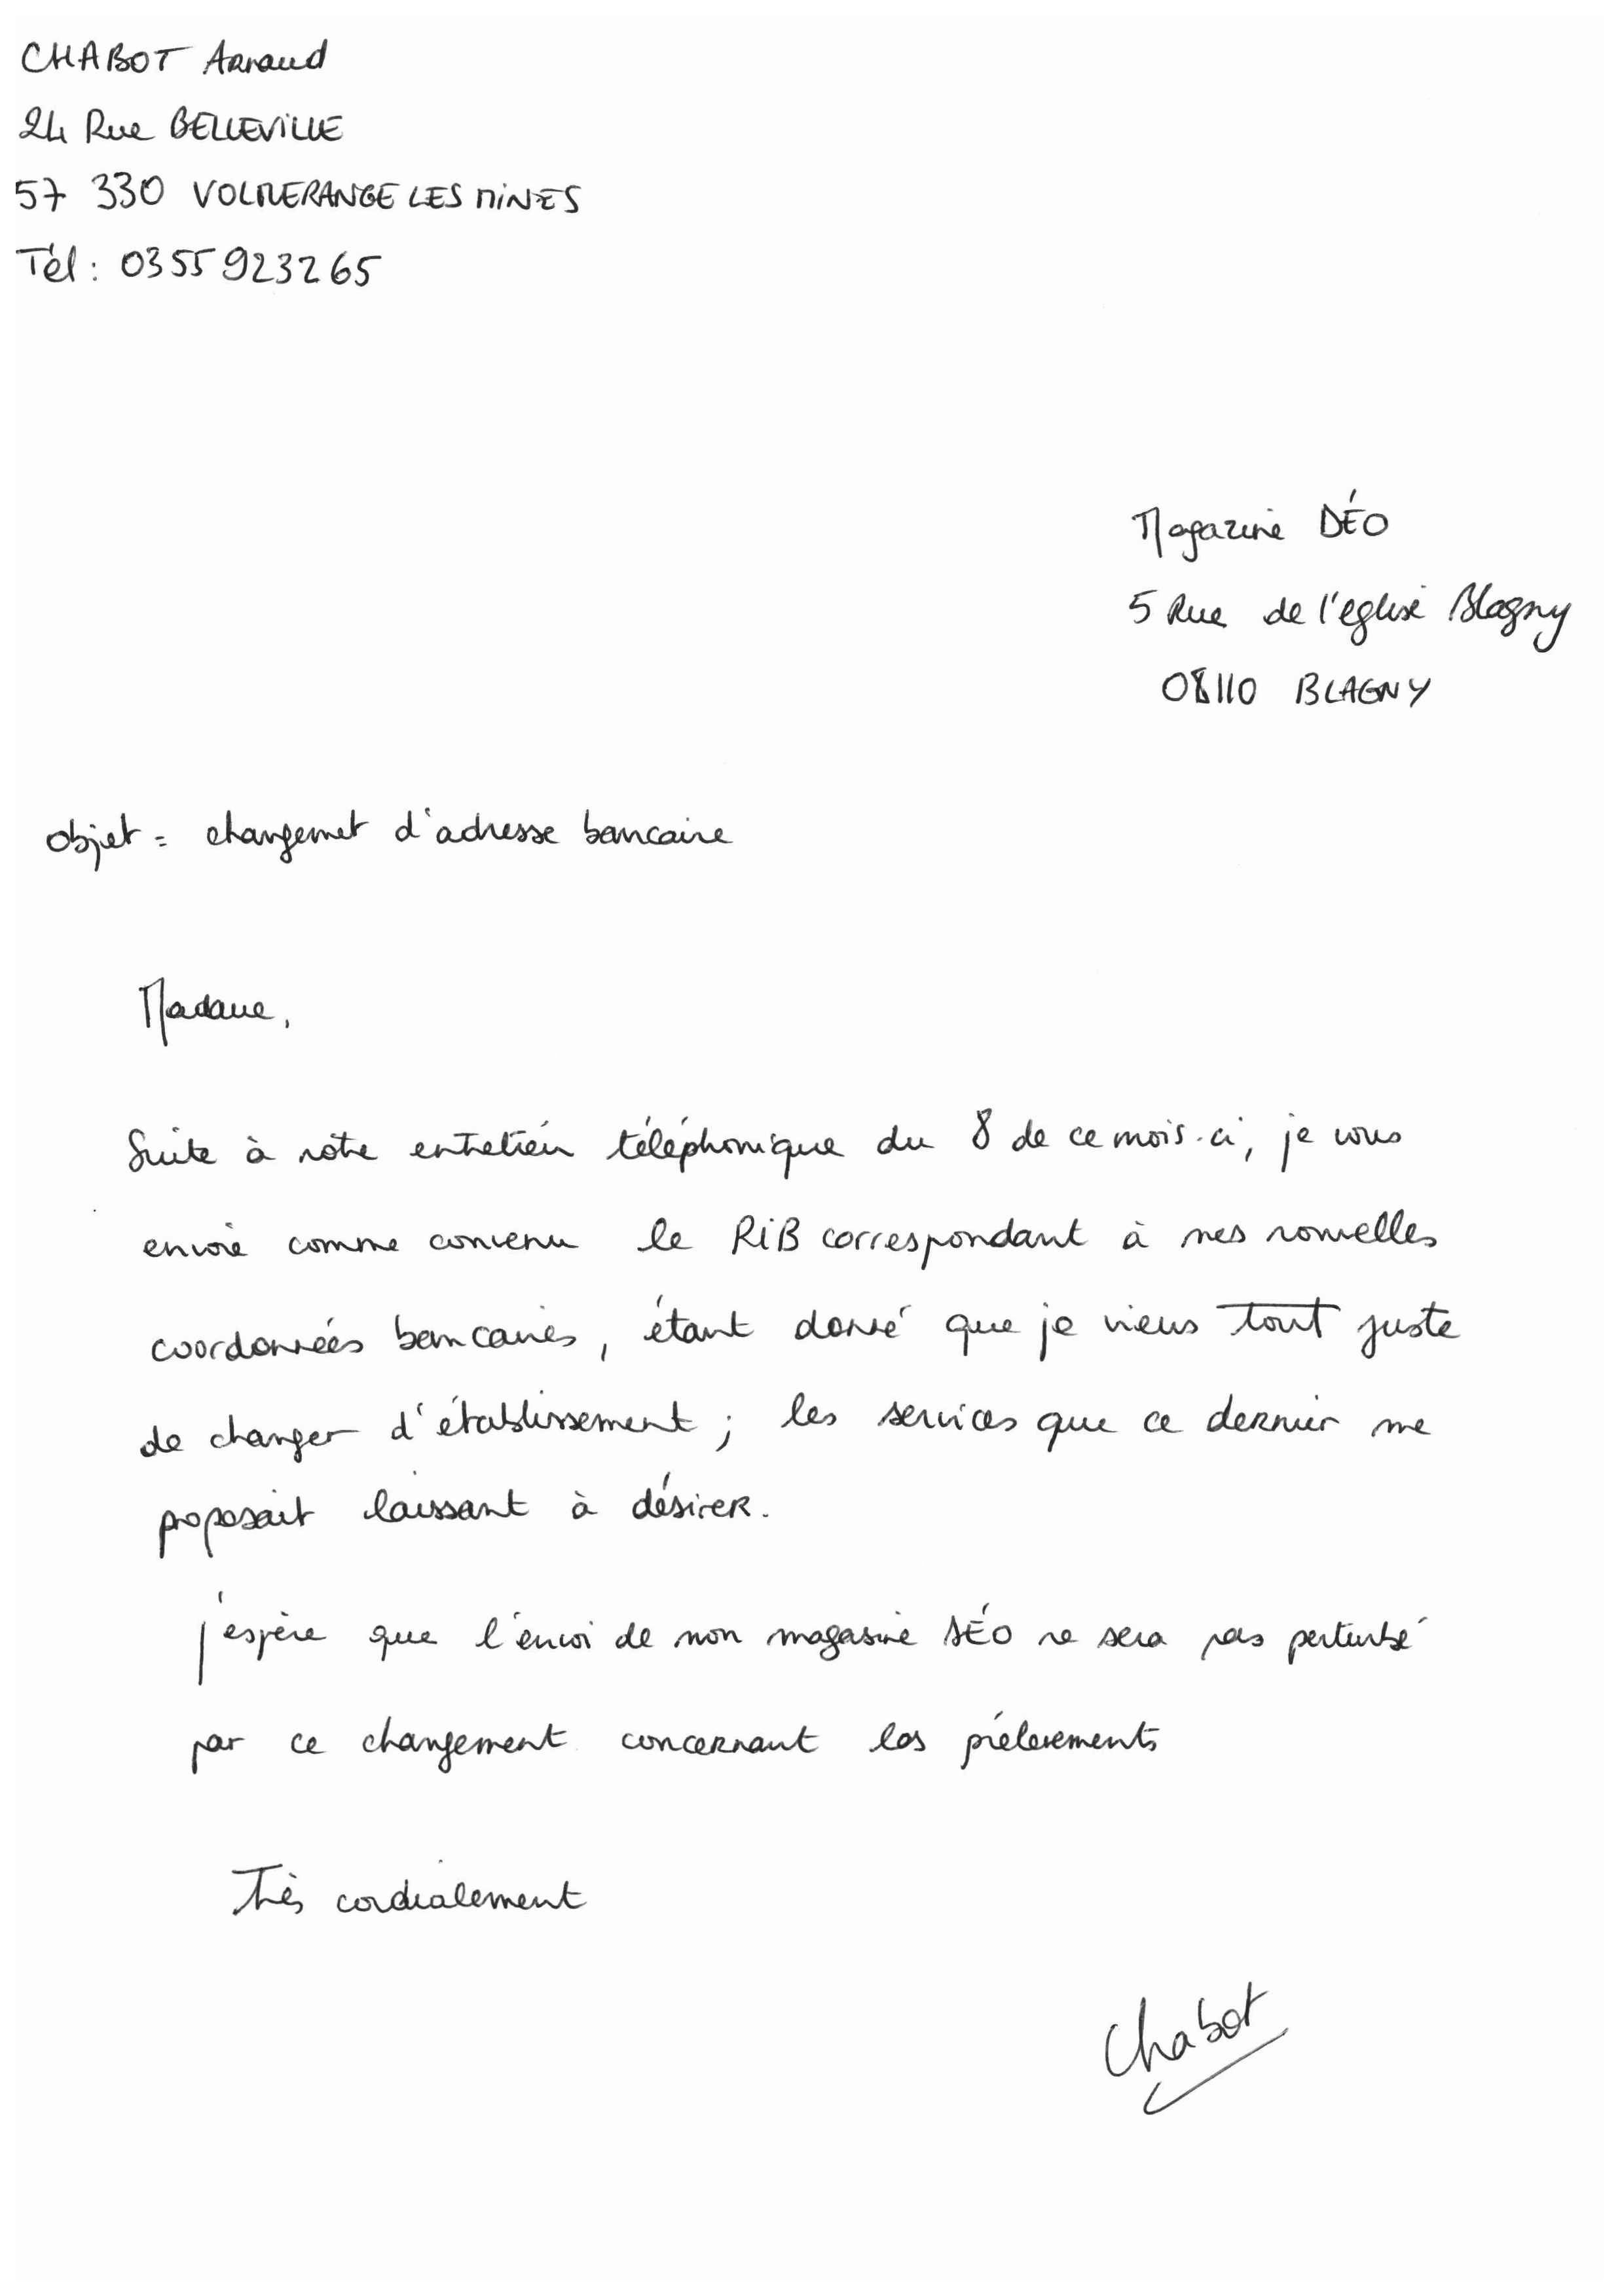 CHABOT Arnaud
24 Rue BELLEVILLE
57 330 VOLMERANGE LES MINES
Tél : 0355923265
Magazine DÉO
5 Rue de l'eglise Blagny
08110 BLAGNY
Objet = changemet d'adresse bancaire
Madame,
Suite à nôtre entretien téléphonique du 8 de ce mois-ci, je vous
envoie comme convenu le RiB correspondant à mes nouvelles
coordonnées bancaires, étant donné que je viens tout juste
de changer d'établissement ; les services que ce dernier me
proposait laissant à désirer.
j'espère que l'envoi de mon magasine DÉO ne sera pas perturbé
par ce changement concernant les prélevements
Très cordialement
Chabot